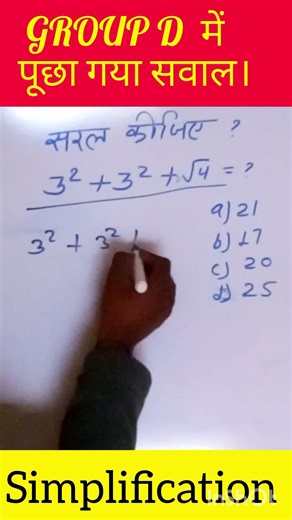 GROUP D में
पूछा गया सवाल।
सरल कीजिए ?
3² + 3² + √4 = ?
a) 21
3² + 3²
b) 17
c) 20
d) 25
Simplification